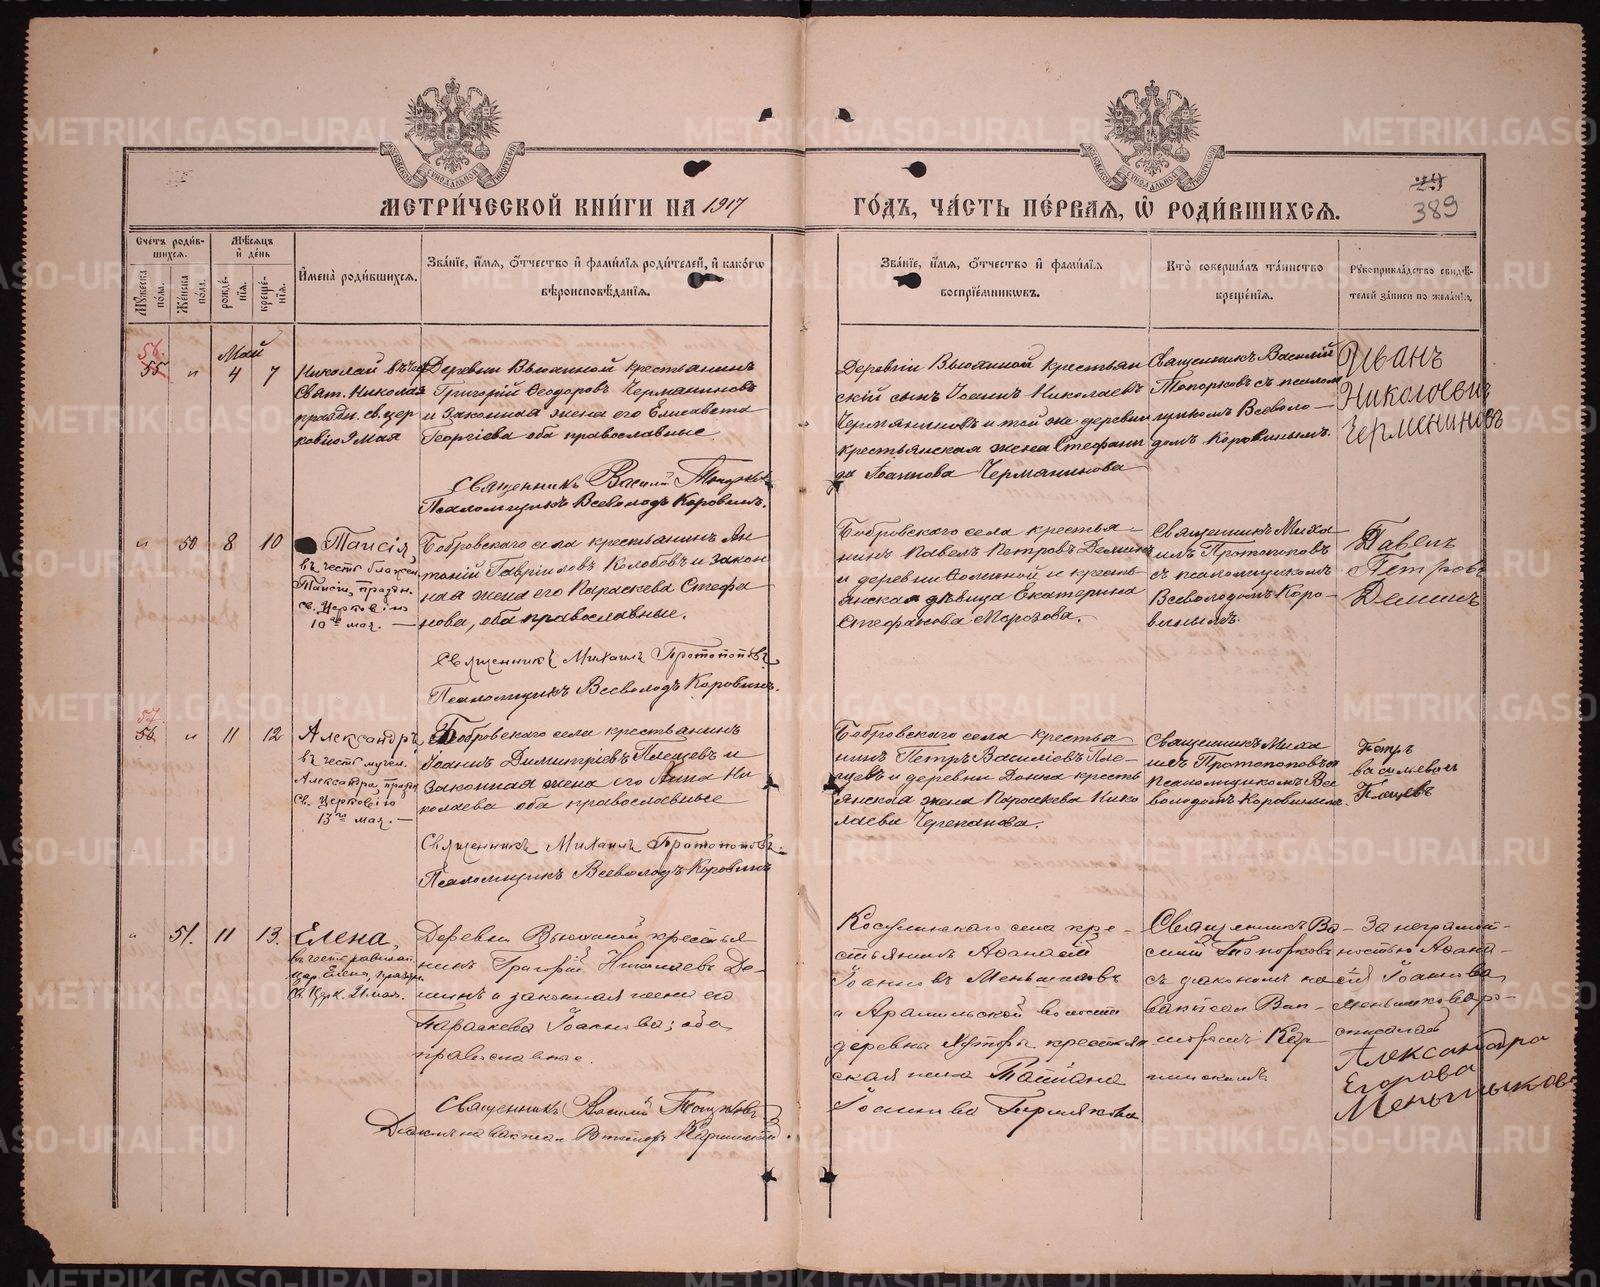 МЕТРИ́ЧЕСКОЙ КНИ́ГИ НА 1917
ГО́ДЪ, ЧА́СТЬ ПЕ́РВАЯ, Ѡ РОДИ́ВШИХСЯ.
389
Сче́тъ роди́в-
шихся.
Мѣ́сяцъ
и҆ де́нь
Му́жеска
по́ла.
Же́нска
по́ла.
рожде́-
нія.
креще́-
нія.
И҆мена̀ роди́вшихся.
Зва́ніе, и҆́мя, ѻ҆́тчество и҆ фами́лія роди́телей, и҆ како́гѡ
вѣроисповѣ́данія.
Зва́ніе, и҆́мя, ѻ҆́тчество и҆ фами́лія
воспрїе́мникѡвъ.
Кто̀ соверша́лъ та́инство
креще́нія.
Рꙋкоприкла́дство свидѣ́-
телей за́писи по жела́нію.
56.
55 " Май 4 7
Николай въ честь
Свят. Николая
праздн. св. цер
ковію 9 мая
Деревни Вьюхиной крестьянинъ
Григорій Ѳеодоровъ Черманиновъ
и законная жена его Елисавета
Георгіева оба православные
Священникъ Василій Топорковъ
Псаломщикъ Всеволодъ Коровинъ.
Деревни Вьюхиной крестьян
скій сынъ Іоаннъ Николаевъ
Черманиновъ и той же деревни
крестьянская жена Стефани
да Іоаннова Черманинова
Священникъ Василій
Топорковъ съ псалом
щикомъ Всеволо-
домъ Коровинымъ.
Иванъ
Николаевъ
Черменинов
" 50 8 10
Таисія,
въ честь блажен.
Таисіи, праздн.
св. Церковію
10го мая. —
Бобровскаго села крестьянинъ Ан
тоній Гавріиловъ Колобовъ и закон
ная жена его Параскева Стефа
нова, оба православные.
Священникъ Михаилъ Протопоповъ
Псаломщикъ Всеволодъ Коровинъ.
Бобровскаго села крестья-
нинъ Павелъ Петровъ Деминъ
и деревни кресть-
янская дѣвица Екатерина
Стефанова Морозова.
Священникъ Миха
илъ Протопоповъ
съ псаломщикомъ
Всеволодомъ Коро-
винымъ.
Павелъ
Петровъ
Деминъ
57.
56 " 11 12
Александръ
въ честь мучен.
Александра, празд
св. Церковію
13го мая. —
Бобровскаго села крестьянинъ
Іоаннъ Димитріевъ Плещевъ и
законная жена его Анна Ни
колаева оба православные
Священникъ Михаилъ Протопоповъ.
Псаломщикъ Всеволодъ Коровинъ
Бобровскаго села крестья
нинъ Петръ Василіевъ Пле-
щевъ и деревни кресть
янская жена Параскева Нико
лаева Черепанова.
Священникъ Миха
илъ Протопоповъ съ
псаломщикомъ Все
володомъ Коровинымъ.
Петръ
васильевичъ
Плещевъ
" 51. 11 13.
Елена,
въ честь равноап.
цар. Елены, праздн.
св. Церк. 21 мая.
Деревни Вьюхиной крестья
нинъ Григорій Николаевъ Де-
минъ и законная жена его
Параскева Іоаннова; оба
православные.
Священникъ Василій Топорковъ
Діаконъ на вакансіи Викторъ Карпинскій.
Косулинскаго села кре-
стьянинъ Аѳанасій
Іоанновъ Меньшиковъ
и Арамильской волости
деревни крестьян
ская жена Татіана
Іоаннова
Священникъ Ва-
силій Топорковъ
съ діакономъ на
вакансіи Вик-
торомъ Кар-
пинскимъ
За неграмот-
ностью Аѳана-
сія Іоаннова
Меньшикова ро-
списалась
Александра
Егорова
Меньшыкова